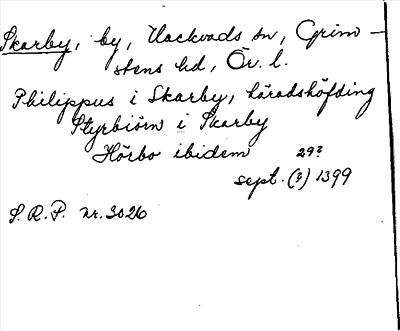 Skarby, by, Hackvads sn, Grim-
stens hd, Ör. l.
Philippus i Skarby, häradshöfding
Styrbiörn i Skarby
Hörbo ibidem 29?
sept. (?) 1399
S.R.P. nr. 3026